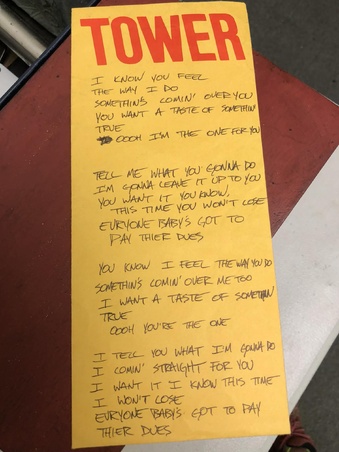 TOWER
I KNOW YOU FEEL
THE WAY I DO
SOMETHIN'S COMIN' OVER YOU
YOU WANT A TASTE OF SOMETHIN
TRUE
OOOH I'M THE ONE FOR YOU
TELL ME WHAT YOU GONNA DO
I'M GONNA LEAVE IT UP TO YOU
YOU WANT IT YOU KNOW,
THIS TIME YOU WON'T LOSE
EVRYONE BABY'S GOT TO
PAY THIER DUES
YOU KNOW I FEEL THE WAY YOU DO
SOMETHIN'S COMIN' OVER ME TOO
I WANT A TASTE OF SOMETHIN
TRUE
OOOH YOU'RE THE ONE
I TELL YOU WHAT I'M GONNA DO
I COMIN' STRAIGHT FOR YOU
I WANT IT I KNOW THIS TIME
I WON'T LOSE
EVRYONE BABY'S GOT TO PAY
THIER DUES